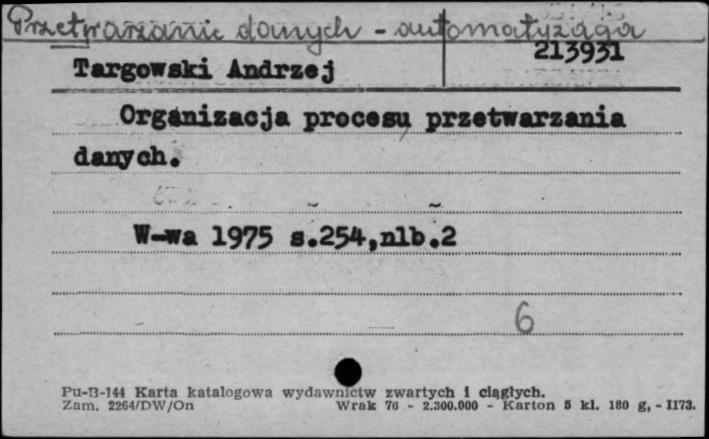 Przetwarzanie danych - automatyzacja
213931
Targowski Andrzej
Organizacja procesu przetwarzania
danych.
W-wa 1975 s.254,nlb.2
6
Pu-B-144 Karta katalogowa wydawnictw zwartych i ciągłych.
Zam. 2264/DW/On Wrak 76 - 2.300.000 - Karton 5 kl. 180 g, - II73.